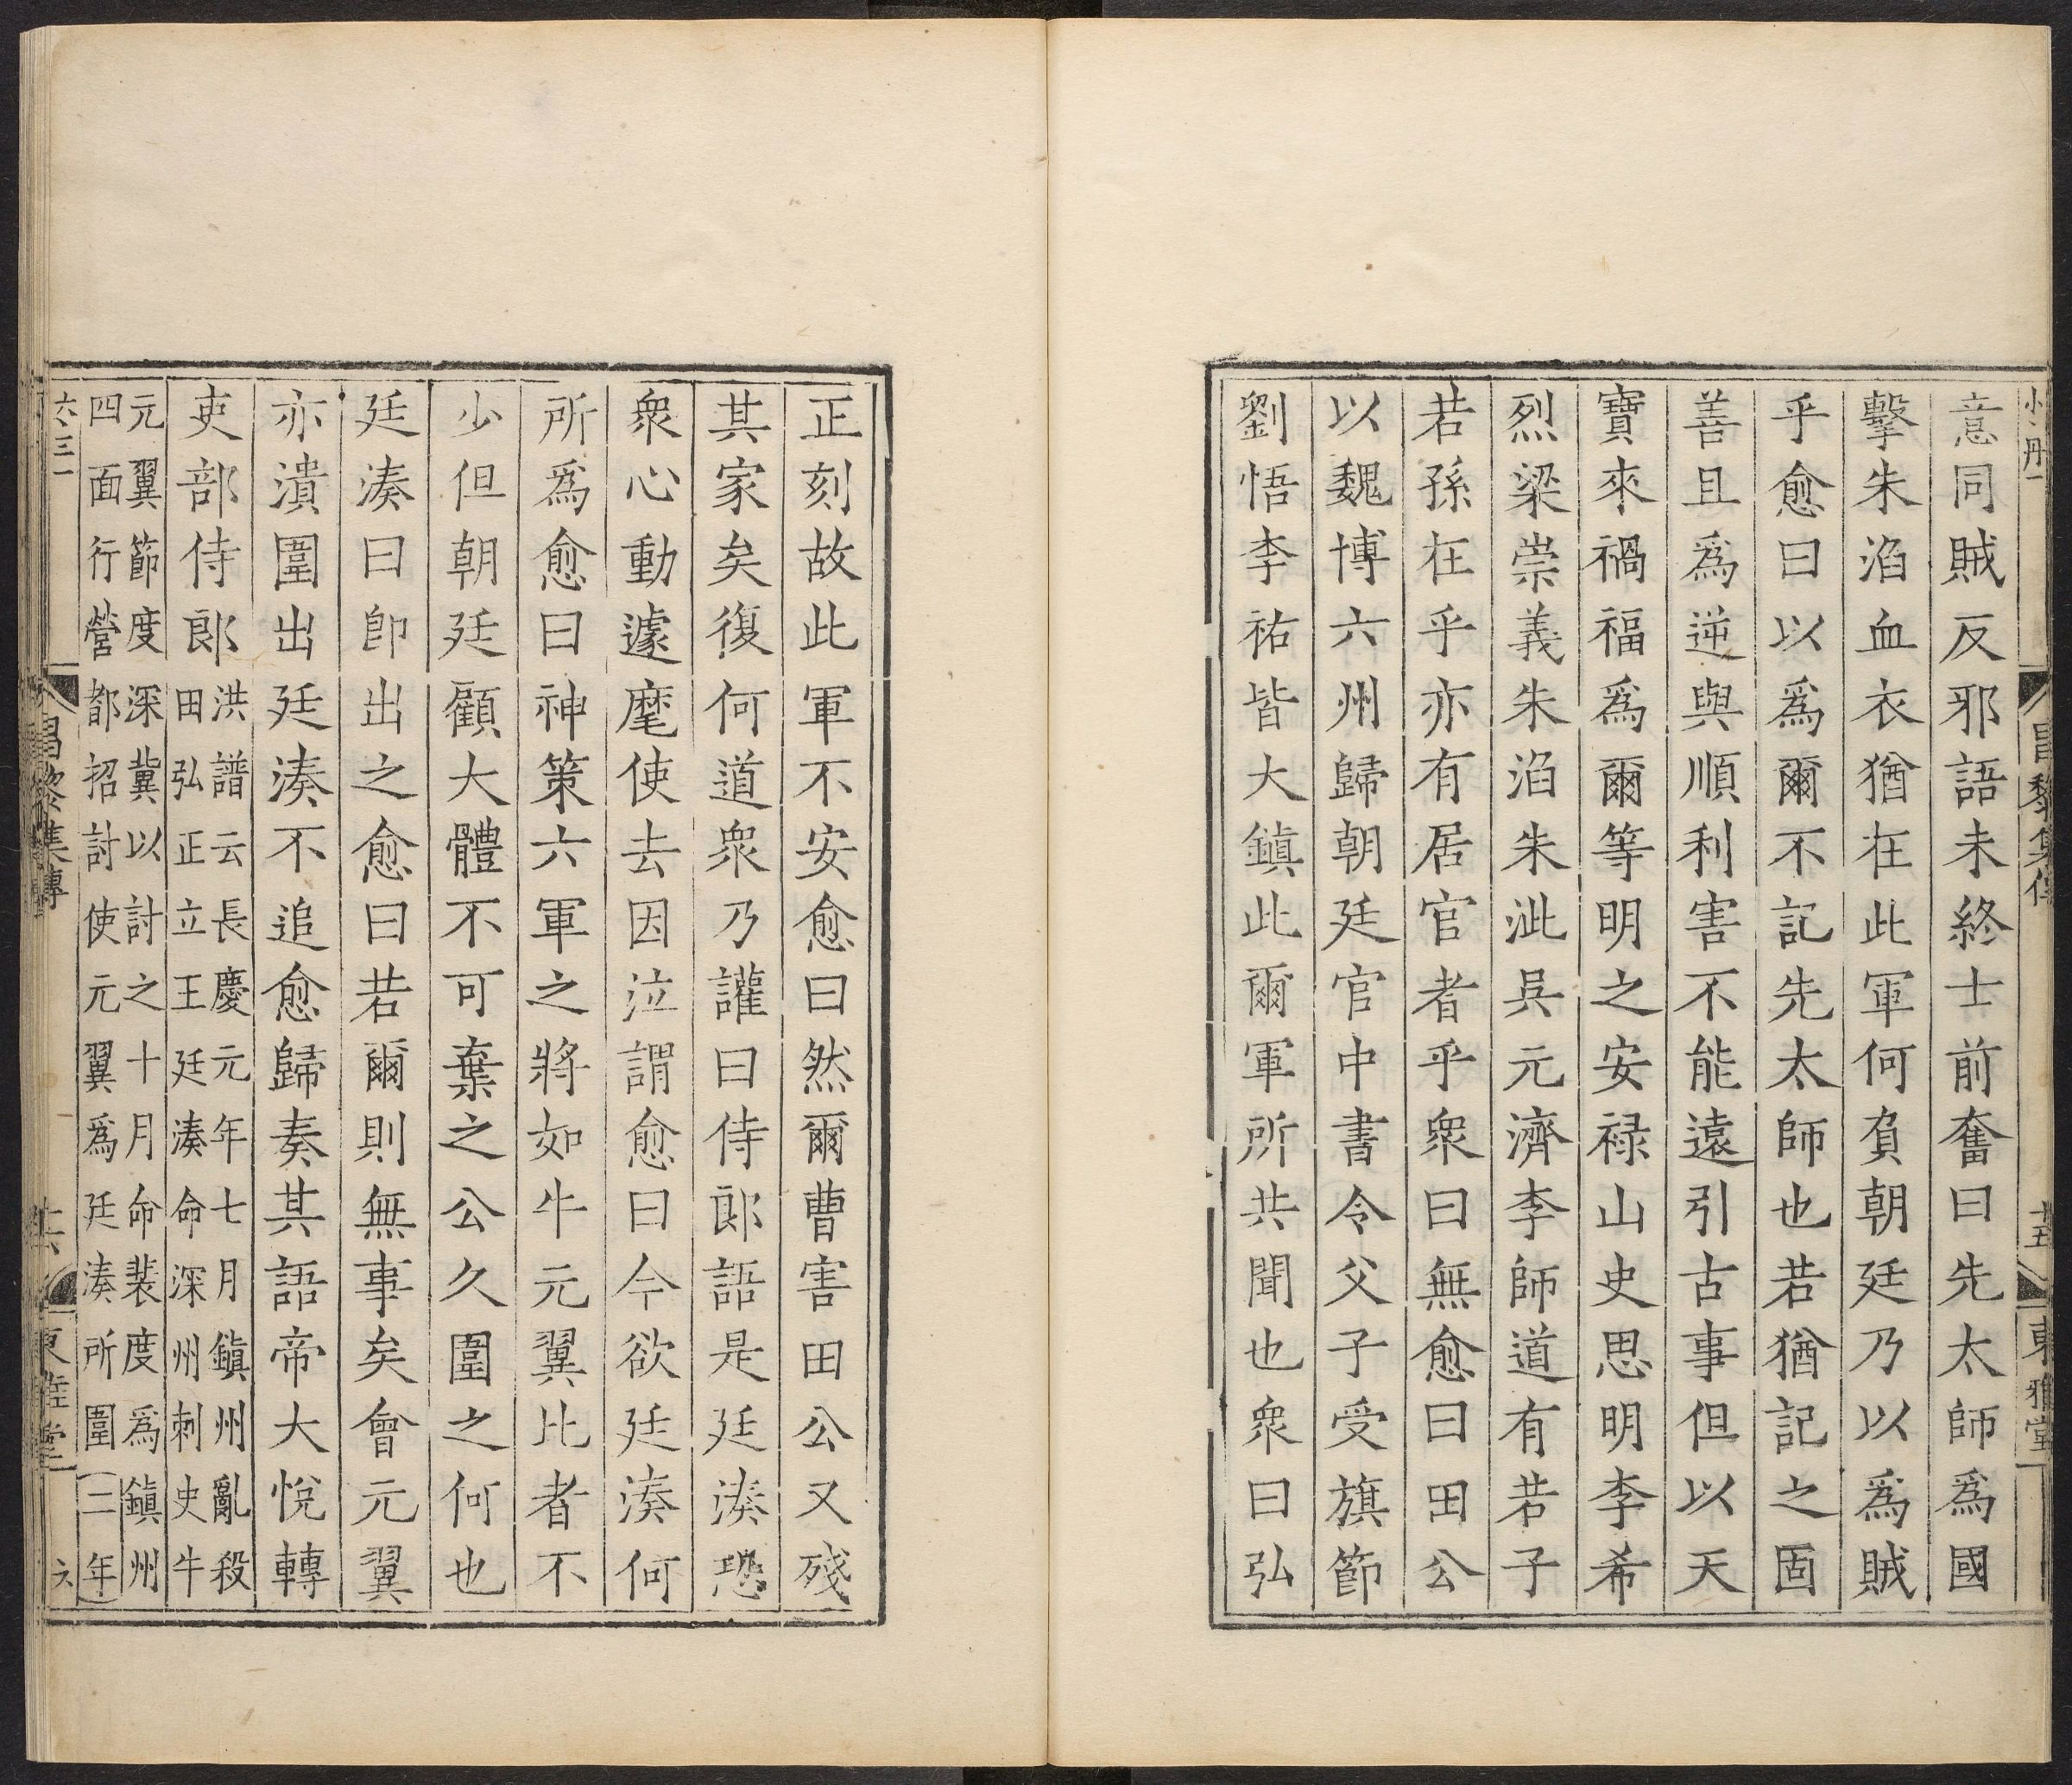 意同賊反邪語未終士前奮曰先太師爲國
擊朱滔血衣猶在此軍何負朝廷乃以爲賊
乎愈曰以爲爾不記先太師也若猶記之固
善且爲逆與順利害不能遠引古事但以天
寶來禍福爲爾等明之安祿山史思明李希
烈梁崇義朱滔朱泚吳元濟李師道有若子
若孫在乎亦有居官者乎眾曰無愈曰田公
以魏博六州歸朝廷官中書令父子受旗節
劉悟李祐皆大鎮此爾軍所共聞也眾曰弘
正刻故此軍不安愈曰然爾曹害田公又殘
其家矣復何道眾乃讙曰侍郎語是廷湊恐
眾心動遽麾使去因泣謂愈曰今欲廷湊何
所爲愈曰神策六軍之將如牛元翼比者不
少但朝廷顧大體不可棄之公久圍之何也
廷湊曰即出之愈曰若爾則無事矣會元翼
亦潰圍出廷湊不追愈歸奏其語帝大悅轉
吏部侍郎
洪譜云長慶元年七月鎮州亂殺
田弘正立王廷湊命深州刺史牛
元翼節度深冀以討之十月命裴度爲鎮州
四面行營都招討使元翼爲廷湊所圍二年
昌黎集傳
十五
東雅堂
昌黎集傳
十六
東雅堂